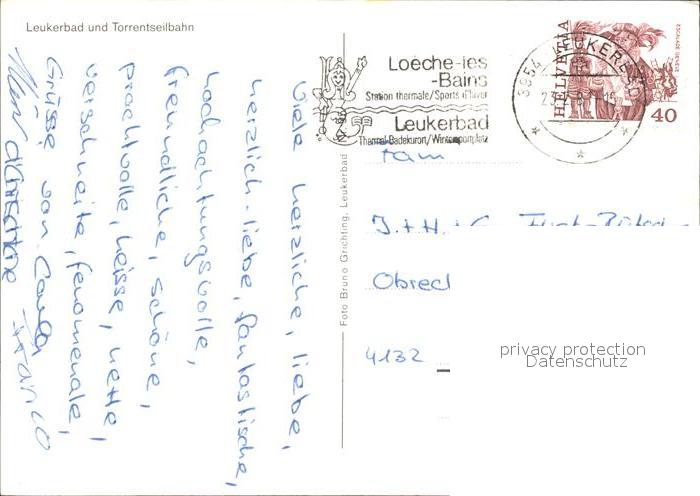 Leukerbad und Torrentseilbahn
Viele herzliche, liebe,
herzlich-liebe, fantastische,
hochachtungsvolle,
freundliche, schöne,
prachtvolle, heisse, nette,
verschneite, fenomenale,
Grüsse von
Foto Bruno Grichting, Leukerbad
Loèche-les
-Bains
Station thermale/Sports d'hiver
Leukerbad
Thermal-Badekurort/Wintersportplatz
3954 LEUKERBAD
HELVETIA
40
Fam
Obrecl
4132
privacy protection
Datenschutz